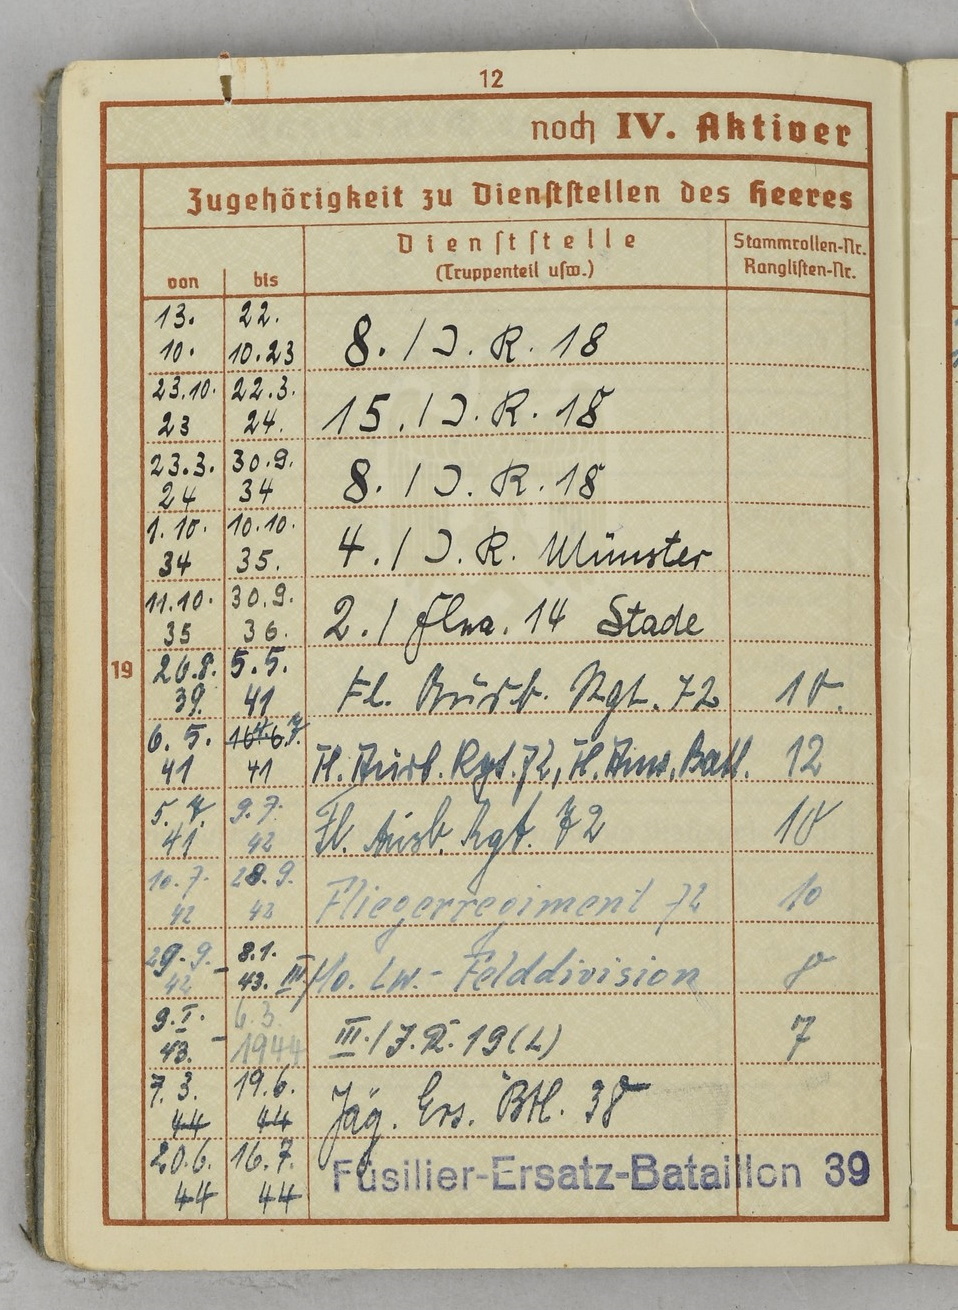 12
noch IV. Aktiver
Zugehörigkeit zu Dienststellen des Heeres
von bis Dienststelle (Truppenteil usw.) Stammrollen-Nr. Ranglisten-Nr.
13. 10. 22. 10.23 8. / J. R. 18
23.10. 23 22.3. 24. 15. / J. R. 18
23.3. 24 30.9. 34 8. / J. R. 18
1.10. 34 10.10. 35. 4. / J. R. Münster
11.10. 35 30.9. 36. 2. / Flua. 14 Stade
19 26.8. 39. 5.5. 41 Fl. Ausb. Rgt. 72 10.
6. 5. 41 41 Fl. Ausb. Rgt. 72, Fl. Anw. Batl. 12
5. 7. 41 9.7. 42 Fl. Ausb. Rgt. 72 10
10.7. 42 28.9. 42 Fliegerregiment 72 10
29.9. 42 - 8.1. 43. III/ Lw.-Felddivision
9.I. 43. - 6.3. 1944 III./J.R. 19(L) 7
7. 3. 44 19.6. 44 Jäg. Ers. Btl. 38
20.6. 44 16.7. 44 Füsilier-Ersatz-Bataillon 39